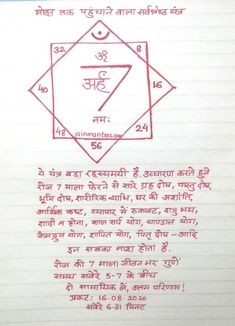 मोक्ष तक पहुंचाने वाला सर्वश्रेष्ठ यंत्र
32 ॐ 8
अर्हं
7
नमः
40 16
jainmantras.com
48 24
56
ये यंत्र बड़ा रहस्यमयी है. उच्चारण करते हुवे
रोज 7 माला फेरने से सारे ग्रह दोष, वास्तु दोष,
भूमि दोष, शारीरिक व्याधि, घर की अशांति,
आर्थिक कष्ट, व्यापार में रुकावट, शत्रु भय,
शादी न होना, काल सर्प योग, चाण्डाल योग,
केमद्रुम योग, शापित योग, पितृ दोष -आदि
इन सबका नाश होता है.
रोज की 7 माला जीवन भर "गुणें"
समय सवेरे 5-7 के बीच
दो सामायिक लें, उत्तम परिणाम!
प्रकट: 16-08-2020
सवेरे 6-31 मिनट